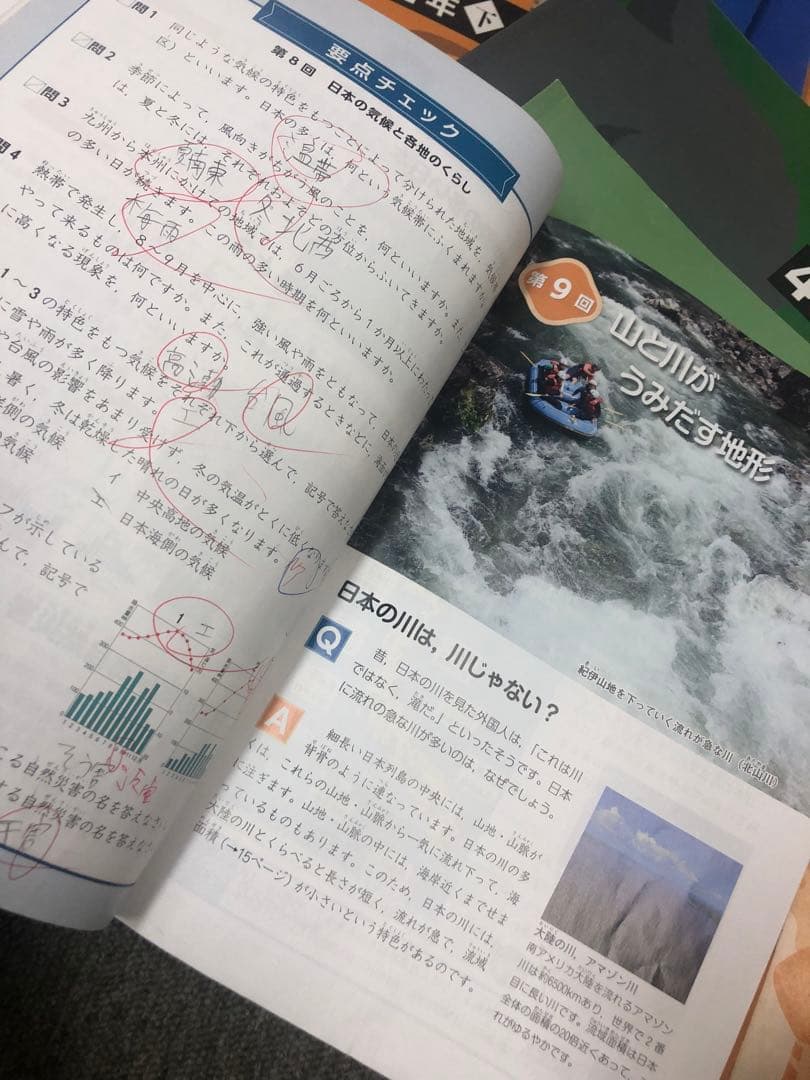 年 下
4
要点チェック
第8回 日本の気候と各地のくらし
問1
同じような気候の特色をもつことによって分けられた地域を，気候
区）といいます。日本の多くは，何という気候帯にふくまれますか。
温帯
問2
季節によって，風向きがちがう風のことを，何といいますか。また
は，夏と冬には，それぞれおよそどの方位からふいてきますか。
南東
北西
問3
九州から本州にかけての地域では，6月ごろから1か月以上にわたっ
の多い日が続きます。この雨の多い時期を何といいますか。
梅雨
問4
熱帯で発生し，8～9月を中心に，強い風や雨をともなって，日本
やって来るものは何ですか。また，これが通過するときなどに，海面
に高くなる現象を，何といいますか。
高潮
風
1～3の特色をもつ気候をそれぞれ下から選んで，記号で答えな
に雪や雨が多く降ります。
や台風の影響をあまり受けず，冬の気温がとくに低
暑く，冬は乾燥した晴れの日が多くなります。
エ
側の気候
イ 中央高地の気候
の気候
エ 日本海側の気候
フが示している
んで，記号で
1 エ
る自然災害の名を答えなさい
する自然災害の名を答えなさ
第9回
山と川が
うみだす地形
紀伊山地を下っていく流れが急な川（北山川）
日本の川は，川じゃない？
Q
昔，日本の川を見た外国人は，「これは川
ではなく，滝だ。」といったそうです。日本
に流れの急な川が多いのは，なぜでしょう。
A
細長い日本列島の中央には，山地・山脈が
背骨のように連なっています。日本の川の多
くは，これらの山地・山脈から一気に流れ下って，海
に注ぎます。山地・山脈の中には，海岸近くまでせま
っているものもあります。このため，日本の川には，
大陸の川とくらべると長さが短く，流れが急で，流域
面積（→15ページ）が小さいという特色があるのです。
大陸の川，アマゾン川
南アメリカ大陸を流れるアマゾン
川は約6500kmあり，世界で2番
目に長い川です。流域面積は日本
全体の面積の20倍近くあって，
れがゆるやかです。